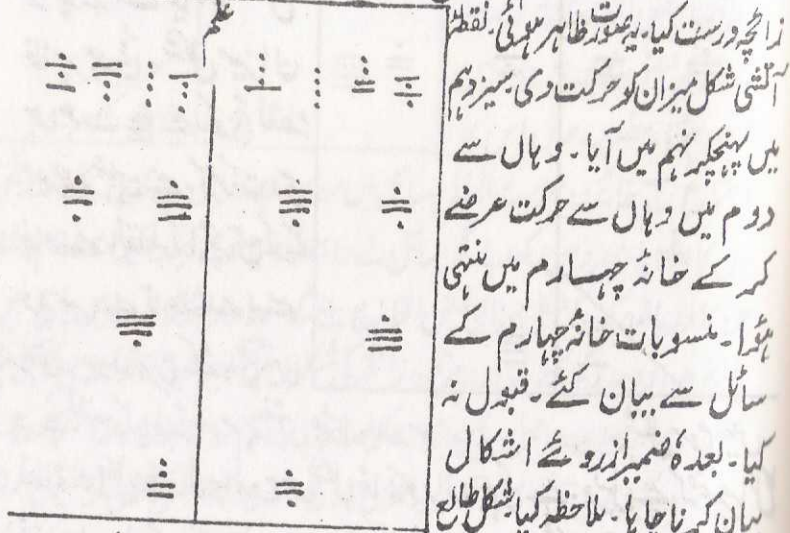 زائچہ درست کیا۔ یہ صورت ظاہر ہوئی۔ نقطۂ
آتشی شکل میزان کو حرکت دی سیزدہم
میں پہنچکر نہم میں آیا۔ وہاں سے
دوم میں وہاں سے حرکت عرضے
کر کے خانۂ چہارم میں منتہی
ہؤا۔ منسوبات خانۂ چہارم کے
سائل سے بیان کئے۔ قبول نہ
کیا۔ بعدہٗ ضمیر ازروئے اشکال
بیان کرنا چاہا۔ ملاحظہ کیا۔ شکل طالع
علم